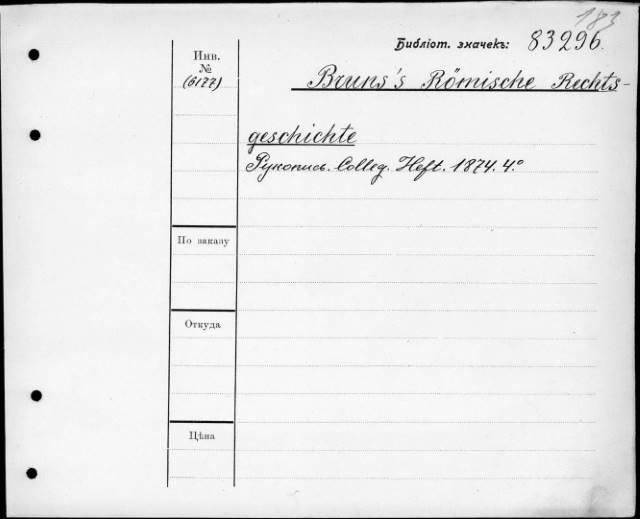 183
Библіот. значекъ: 83296.
Инв.
№
(6177)
Bruns's Römische Rechts-
geschichte
Рукопись. Colleg. Heft. 1874. 4°
По заказу
Откуда
Цѣна